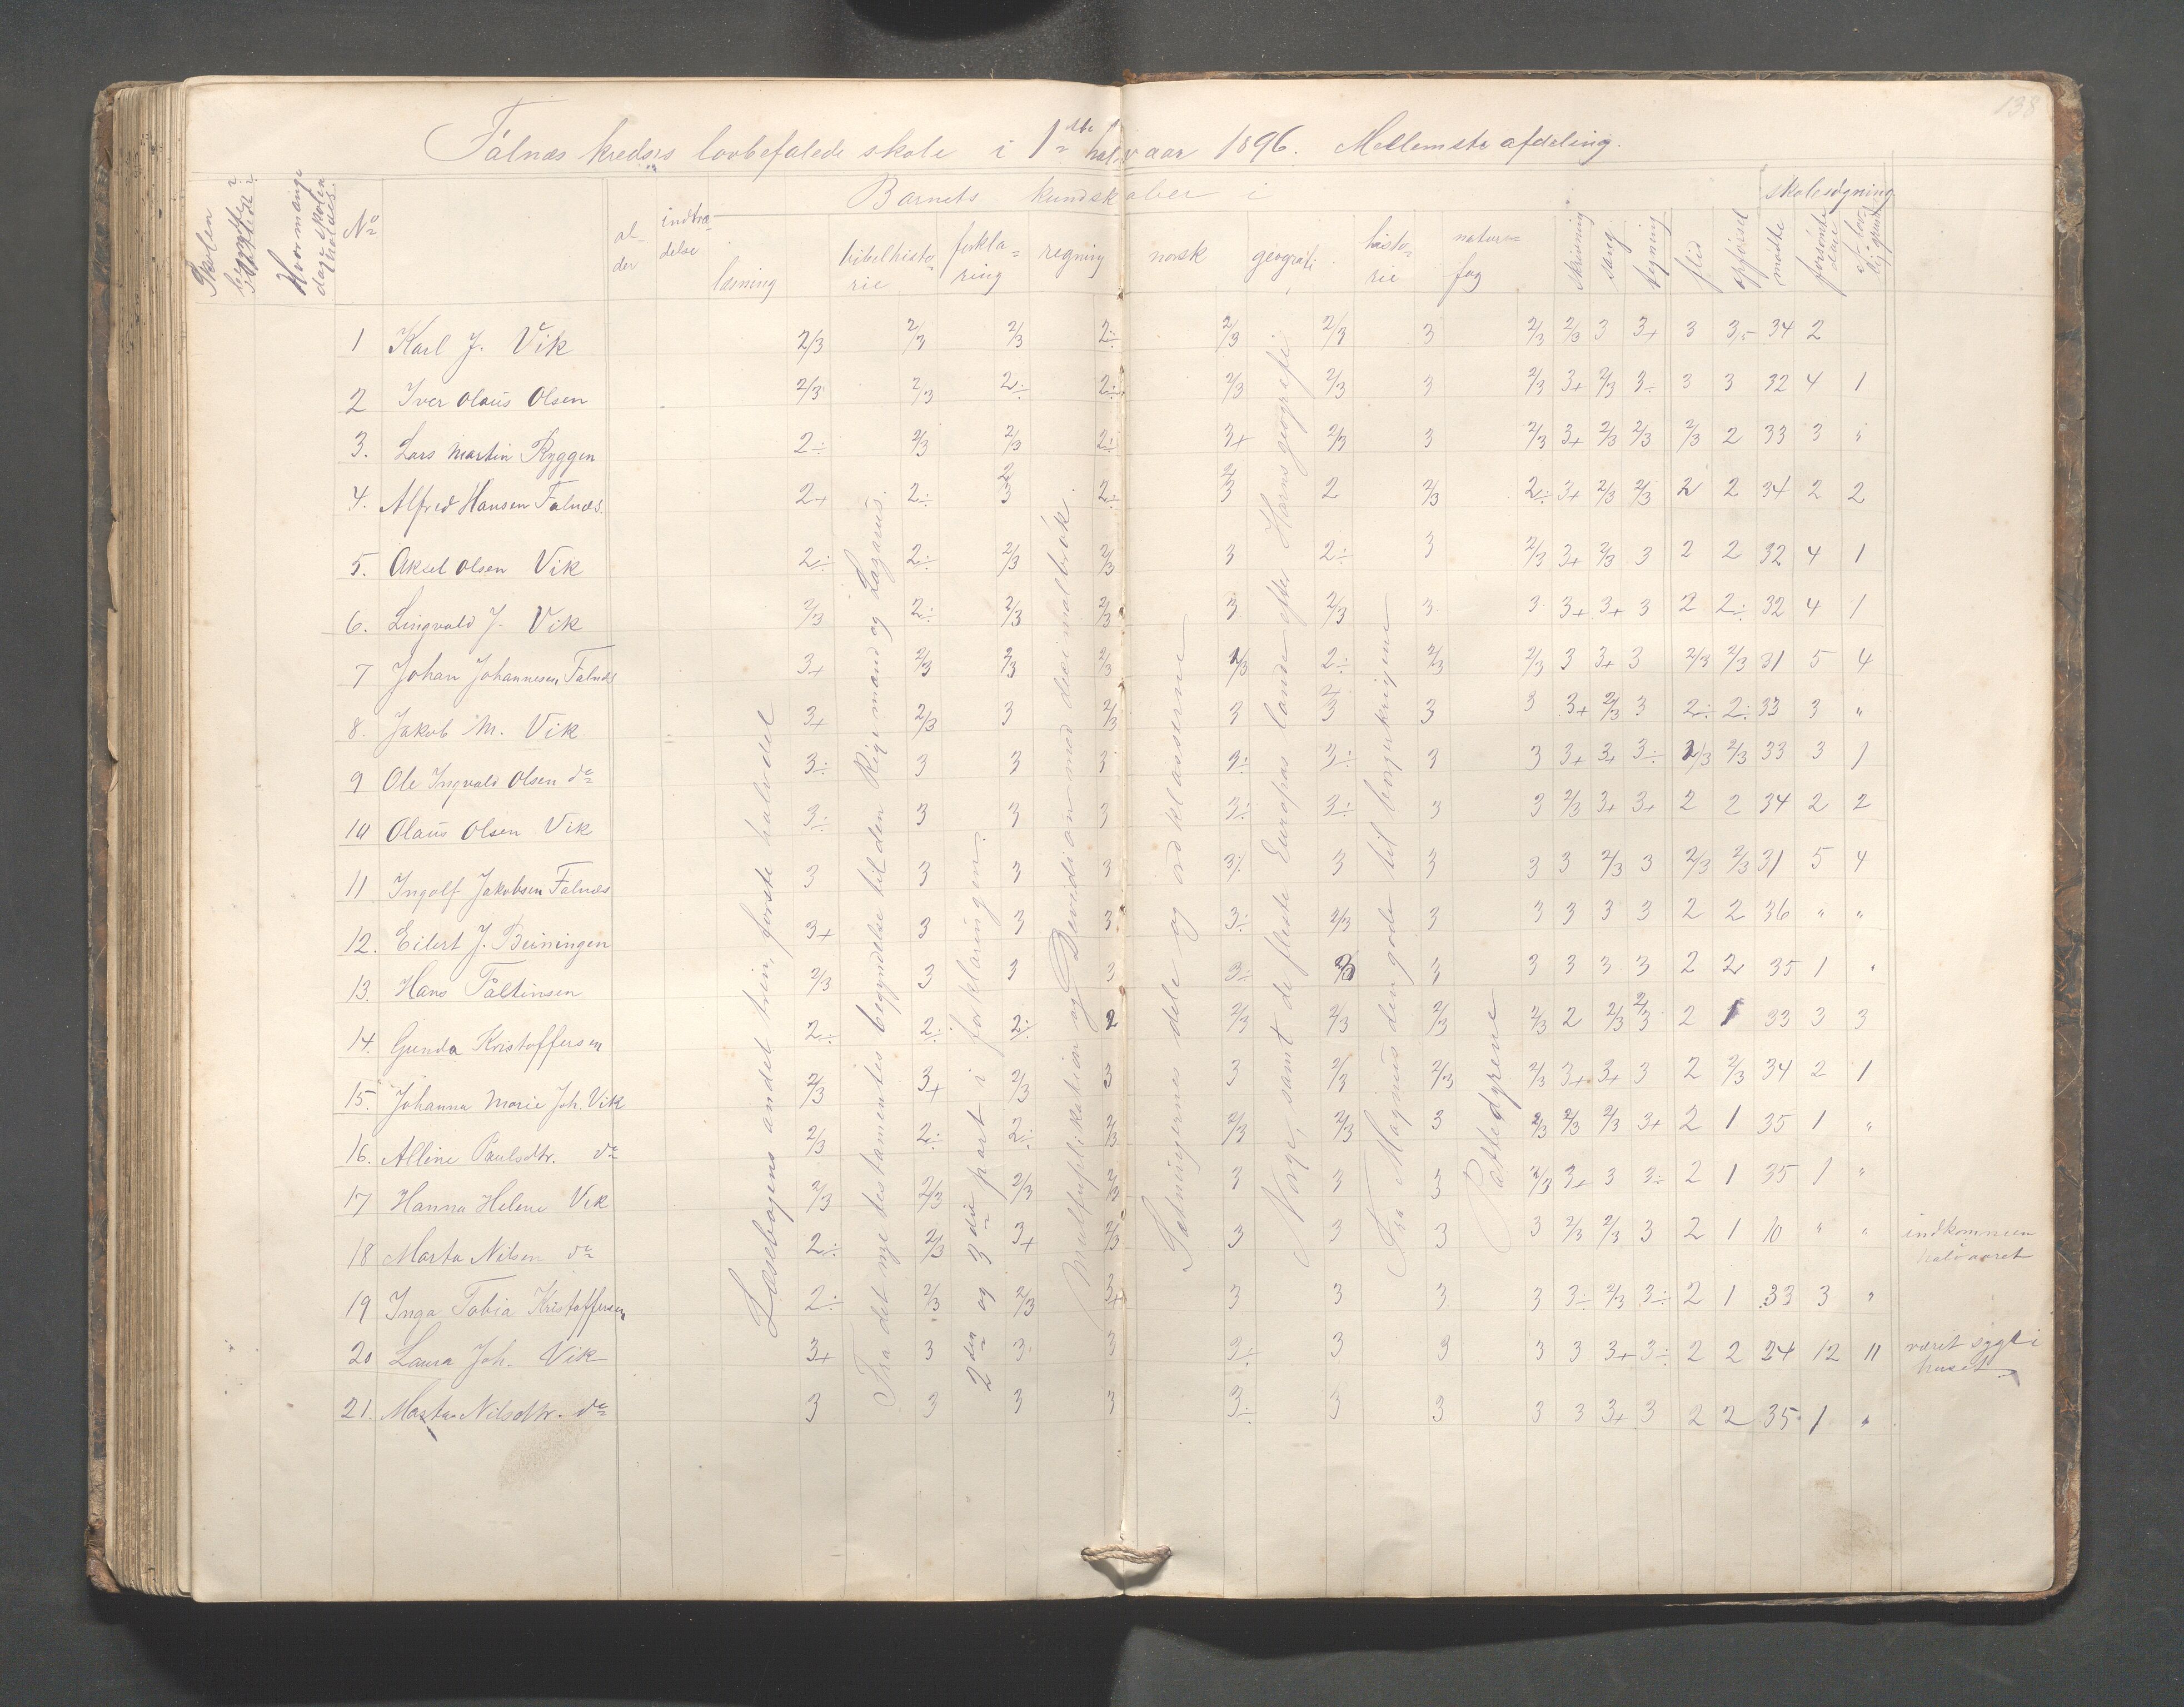 138
Falnæs kredses lovbefalede skole i 1ste halvaar 1896. Mellemste afdeling.
Barnets kundskaber i
skolesøgning
Skolen begyndte? sluttede?
Hvormange dage skolen holdtes.
No
alder
indtrædelse
læsning
bibelhistorie
forklaring
regning
norsk
geografi
historie
naturfag
skrivning
sang
tegning
flid
opførsel
mødte
forsømte dage
af lovlig grund
1 Karl J. Vik 2/3 2/3 2/3 2÷ 2/3 2/3 3 2/3 2/3 3 3+ 3 3÷ 34 2
2 Iver Olaus Olsen 2/3 2/3 2÷ 2÷ 2/3 2/3 3 2/3 3+ 2/3 3÷ 3 3 32 4 1
3. Lars Martin Ryggen 2÷ 2/3 2/3 2÷ 3+ 2/3 3 2/3 3+ 2/3 2/3 2/3 2 33 3 "
4. Alfred Hansen Falnæs. 2+ 2÷ 2/3 2÷ 2/3 2 2/3 2÷ 3+ 2/3 2/3 2 2 34 2 2
5. Aksel Olsen Vik 2÷ 2÷ 2/3 2/3 3 2÷ 3 2/3 3+ 2/3 3 2 2 32 4 1
6. Lingvald J. Vik 2/3 2÷ 2/3 2/3 3 2/3 3 3 3+ 3+ 3 2 2÷ 32 4 1
7 Johan Johannesen Falnæs 3+ 2/3 2/3 2/3 2/3 2÷ 2/3 2/3 3 3+ 3 2/3 2/3 31 5 4
8. Jakob M. Vik 3+ 2/3 3 2/3 3 2/3 3 3 3+ 2/3 3 2÷ 2÷ 33 3 "
9 Ole Ingvald Olsen do 3÷ 3 3 3 3÷ 3÷ 3 3 3+ 3+ 3÷ 2/3 2/3 33 3 1
10 Olaus Olsen Vik 3÷ 3 3 3 3÷ 3÷ 3 3 2/3 3+ 3+ 2 2 34 2 2
11 Ingolf Jakobsen Falnæs 3 3 3 3 3÷ 3 3 3 3 2/3 3 2/3 2/3 31 5 4
12. Eilert J. Beiningen 3+ 3 3 3 3÷ 2/3 3 3 3 3 3 2 2 36 " "
13. Hans Taltinsen 2/3 3 3 3 3÷ 3 3 3 3 3 3 2 2 35 1 "
14. Gunda Kristoffersen 2÷ 2÷ 2÷ 2 2/3 2/3 2/3 2/3 2 2/3 2/3 2 1 33 3 3
15. Johanna Marie Joh. Vik 2/3 3+ 2/3 3 3 2/3 2/3 2/3 3+ 3+ 3 2 2/3 34 2 1
16. Alline Paulsdtr. do 2/3 2÷ 2÷ 2/3 2/3 2/3 3 2/3 2/3 2/3 3+ 2 1 35 1 "
17 Hanna Helene Vik 2/3 2/3 2/3 2/3 3 3 3 2/3 3+ 3 3÷ 2 1 35 1 "
18 Marta Nilsen do 2÷ 2/3 3+ 2/3 3 3 3 3 2/3 2/3 3 2 1 10 " " indkommen halvaaret
19 Inga Tobia Kristoffersen 2÷ 2/3 2/3 3+ 3 3 3 3 3÷ 2/3 3÷ 2 1 33 3 "
20 Laura Joh. Vik 3+ 3 3 3 3÷ 3 3 3 3 3+ 3÷ 2 2 24 12 11 været sygt i huset
21. Marta Nilsdtr. do 3 3 3 3 3÷ 3 3 3 3 3+ 3 2 2 35 1 "
Læsebogens andet trin, første halvdel
Fra det nye testamentes begyndelse til den Rige mand og Lazarus.
2den og 3die part i forklaringen.
Multiplikation og Division med decimalbrøk.
Sætningernes dele og ordklasserne
Norge, samt de fleste Europas lande efter Horns geografi.
Fra Magnus den gode til borgerkrigene
Pattedyrene